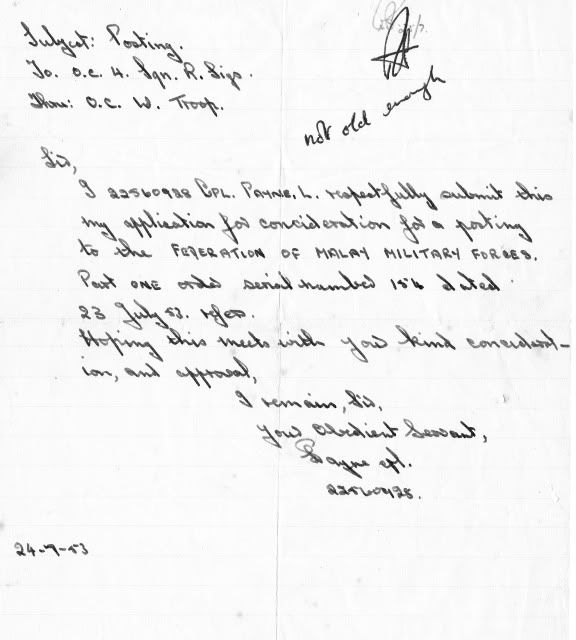 Subject: Posting.
To. O.C. 4. Sqn. R. Sigs.
Thro: O.C. W. Troop.
not old enough
Sir,
I 22560928 CPL. PAYNE. L. respectfully submit this
my application for concideration for a posting
to the FEDERATION OF MALAY MILITARY FORCES.
Part ONE order serial number 154 dated
23 July 53. refers.
Hoping this meets with your kind concideret-
ion, and approval,
I remain, Sir,
Your Obedient Servant,
Payne cpl.
22560928.
24-7-53